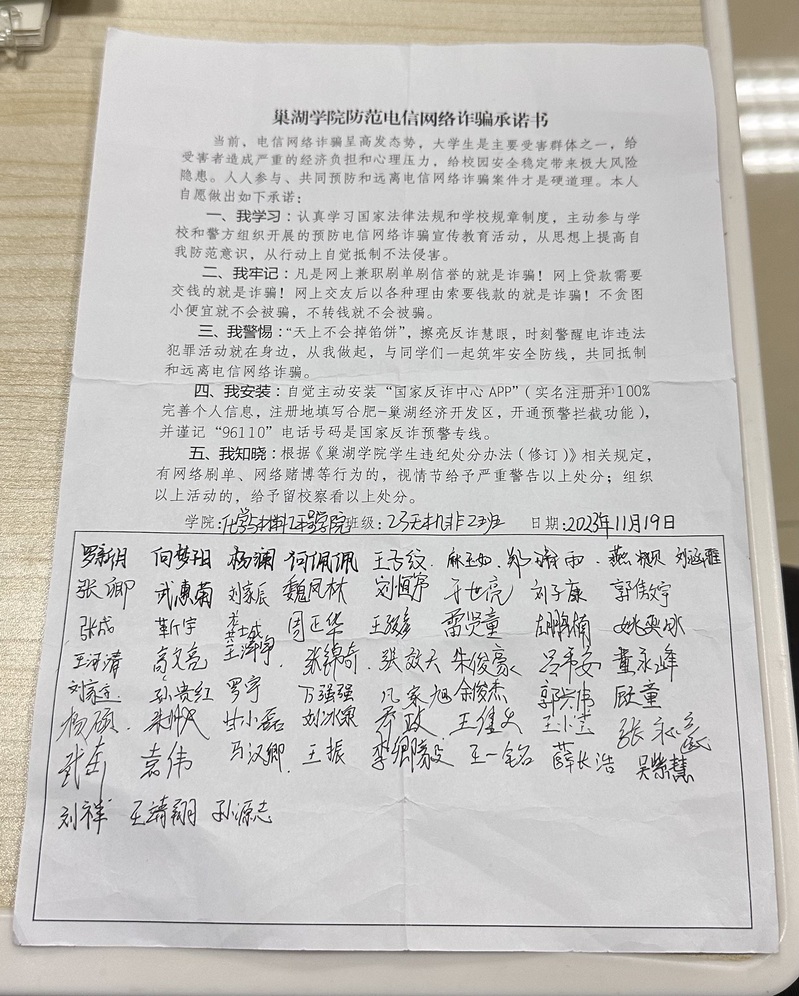 巢湖学院防范电信网络诈骗承诺书
当前，电信网络诈骗呈高发态势，大学生是主要受害群体之一，给
受害者造成严重的经济负担和心理压力，给校园安全稳定带来极大风险
隐患。人人参与、共同预防和远离电信网络诈骗案件才是硬道理。本人
自愿做出如下承诺：
一、我学习：认真学习国家法律法规和学校规章制度，主动参与学
校和警方组织开展的预防电信网络诈骗宣传教育活动，从思想上提高自
我防范意识，从行动上自觉抵制不法侵害。
二、我牢记：凡是网上兼职刷单刷信誉的就是诈骗！网上贷款需要
交钱的就是诈骗！网上交友后以各种理由索要钱款的就是诈骗！不贪图
小便宜就不会被骗，不转钱就不会被骗。
三、我警惕：“天上不会掉馅饼”，擦亮反诈慧眼，时刻警醒电诈违法
犯罪活动就在身边，从我做起，与同学们一起筑牢安全防线，共同抵制
和远离电信网络诈骗。
四、我安装：自觉主动安装“国家反诈中心 APP”（实名注册并100%
完善个人信息，注册地填写合肥-巢湖经济开发区，开通预警拦截功能），
并谨记“96110”电话号码是国家反诈预警专线。
五、我知晓：根据《巢湖学院学生违纪处分办法（修订）》相关规定，
有网络刷单、网络赌博等行为的，视情节给予严重警告以上处分；组织
以上活动的，给予留校察看以上处分。
学院：化学与材料工程学院 班级：23无机非2班 日期：2023年11月19日
罗新月 向梦阳 杨澜 何佩佩 刘涵雅
张卿 武惠菊 刘家辰 魏凤林 刘恒箫 于世亮 刘子康
张成 靳宇 周正华 雷贤童 姚奕冰
王河清 高文亮 王泽宇 张锦奇 张效天 朱俊豪 吕帝安 董永峰
孙贵红 罗宇 万强强 凡家旭 余俊杰 郭兴伟 顾童
杨硕 甘小磊 刘冰泉 乔政
武岳 袁伟 马汉卿 王振 李卿毅 王一铭 薛长浩 吴紫慧
刘祥 王靖翔 孙源志